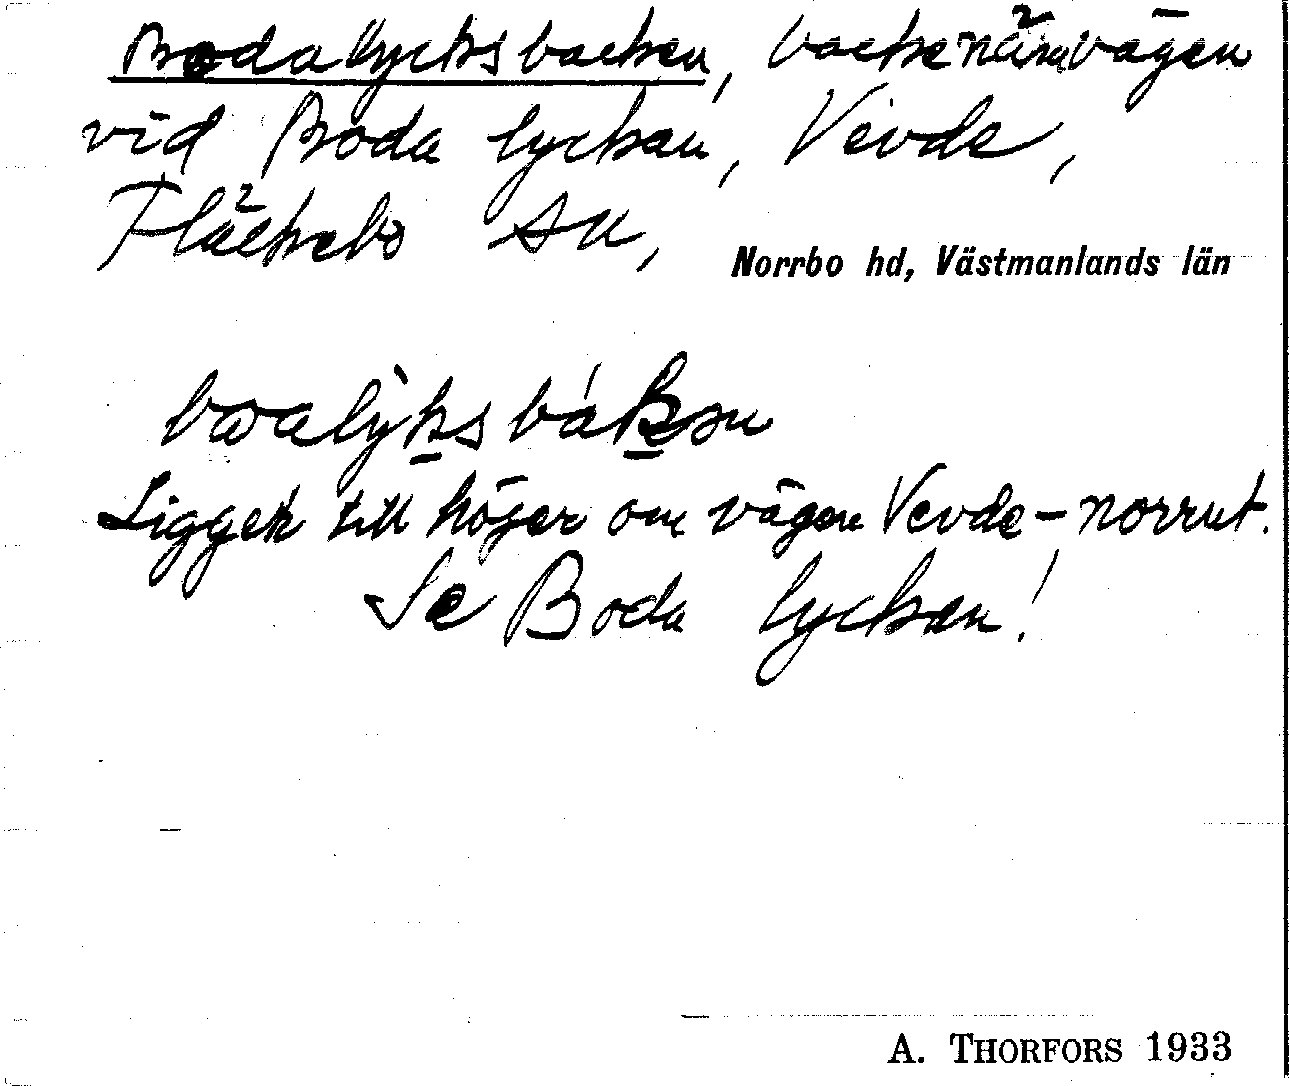 Bodalycksbacken, backe nära vägen
vid Boda lyckan, Vevde,
Fläckebo sn,
Norrbo hd, Västmanlands län
Ligger till höger om vägen Vevde - norrut.
Se Boda lyckan!
A. THORFORS 1933